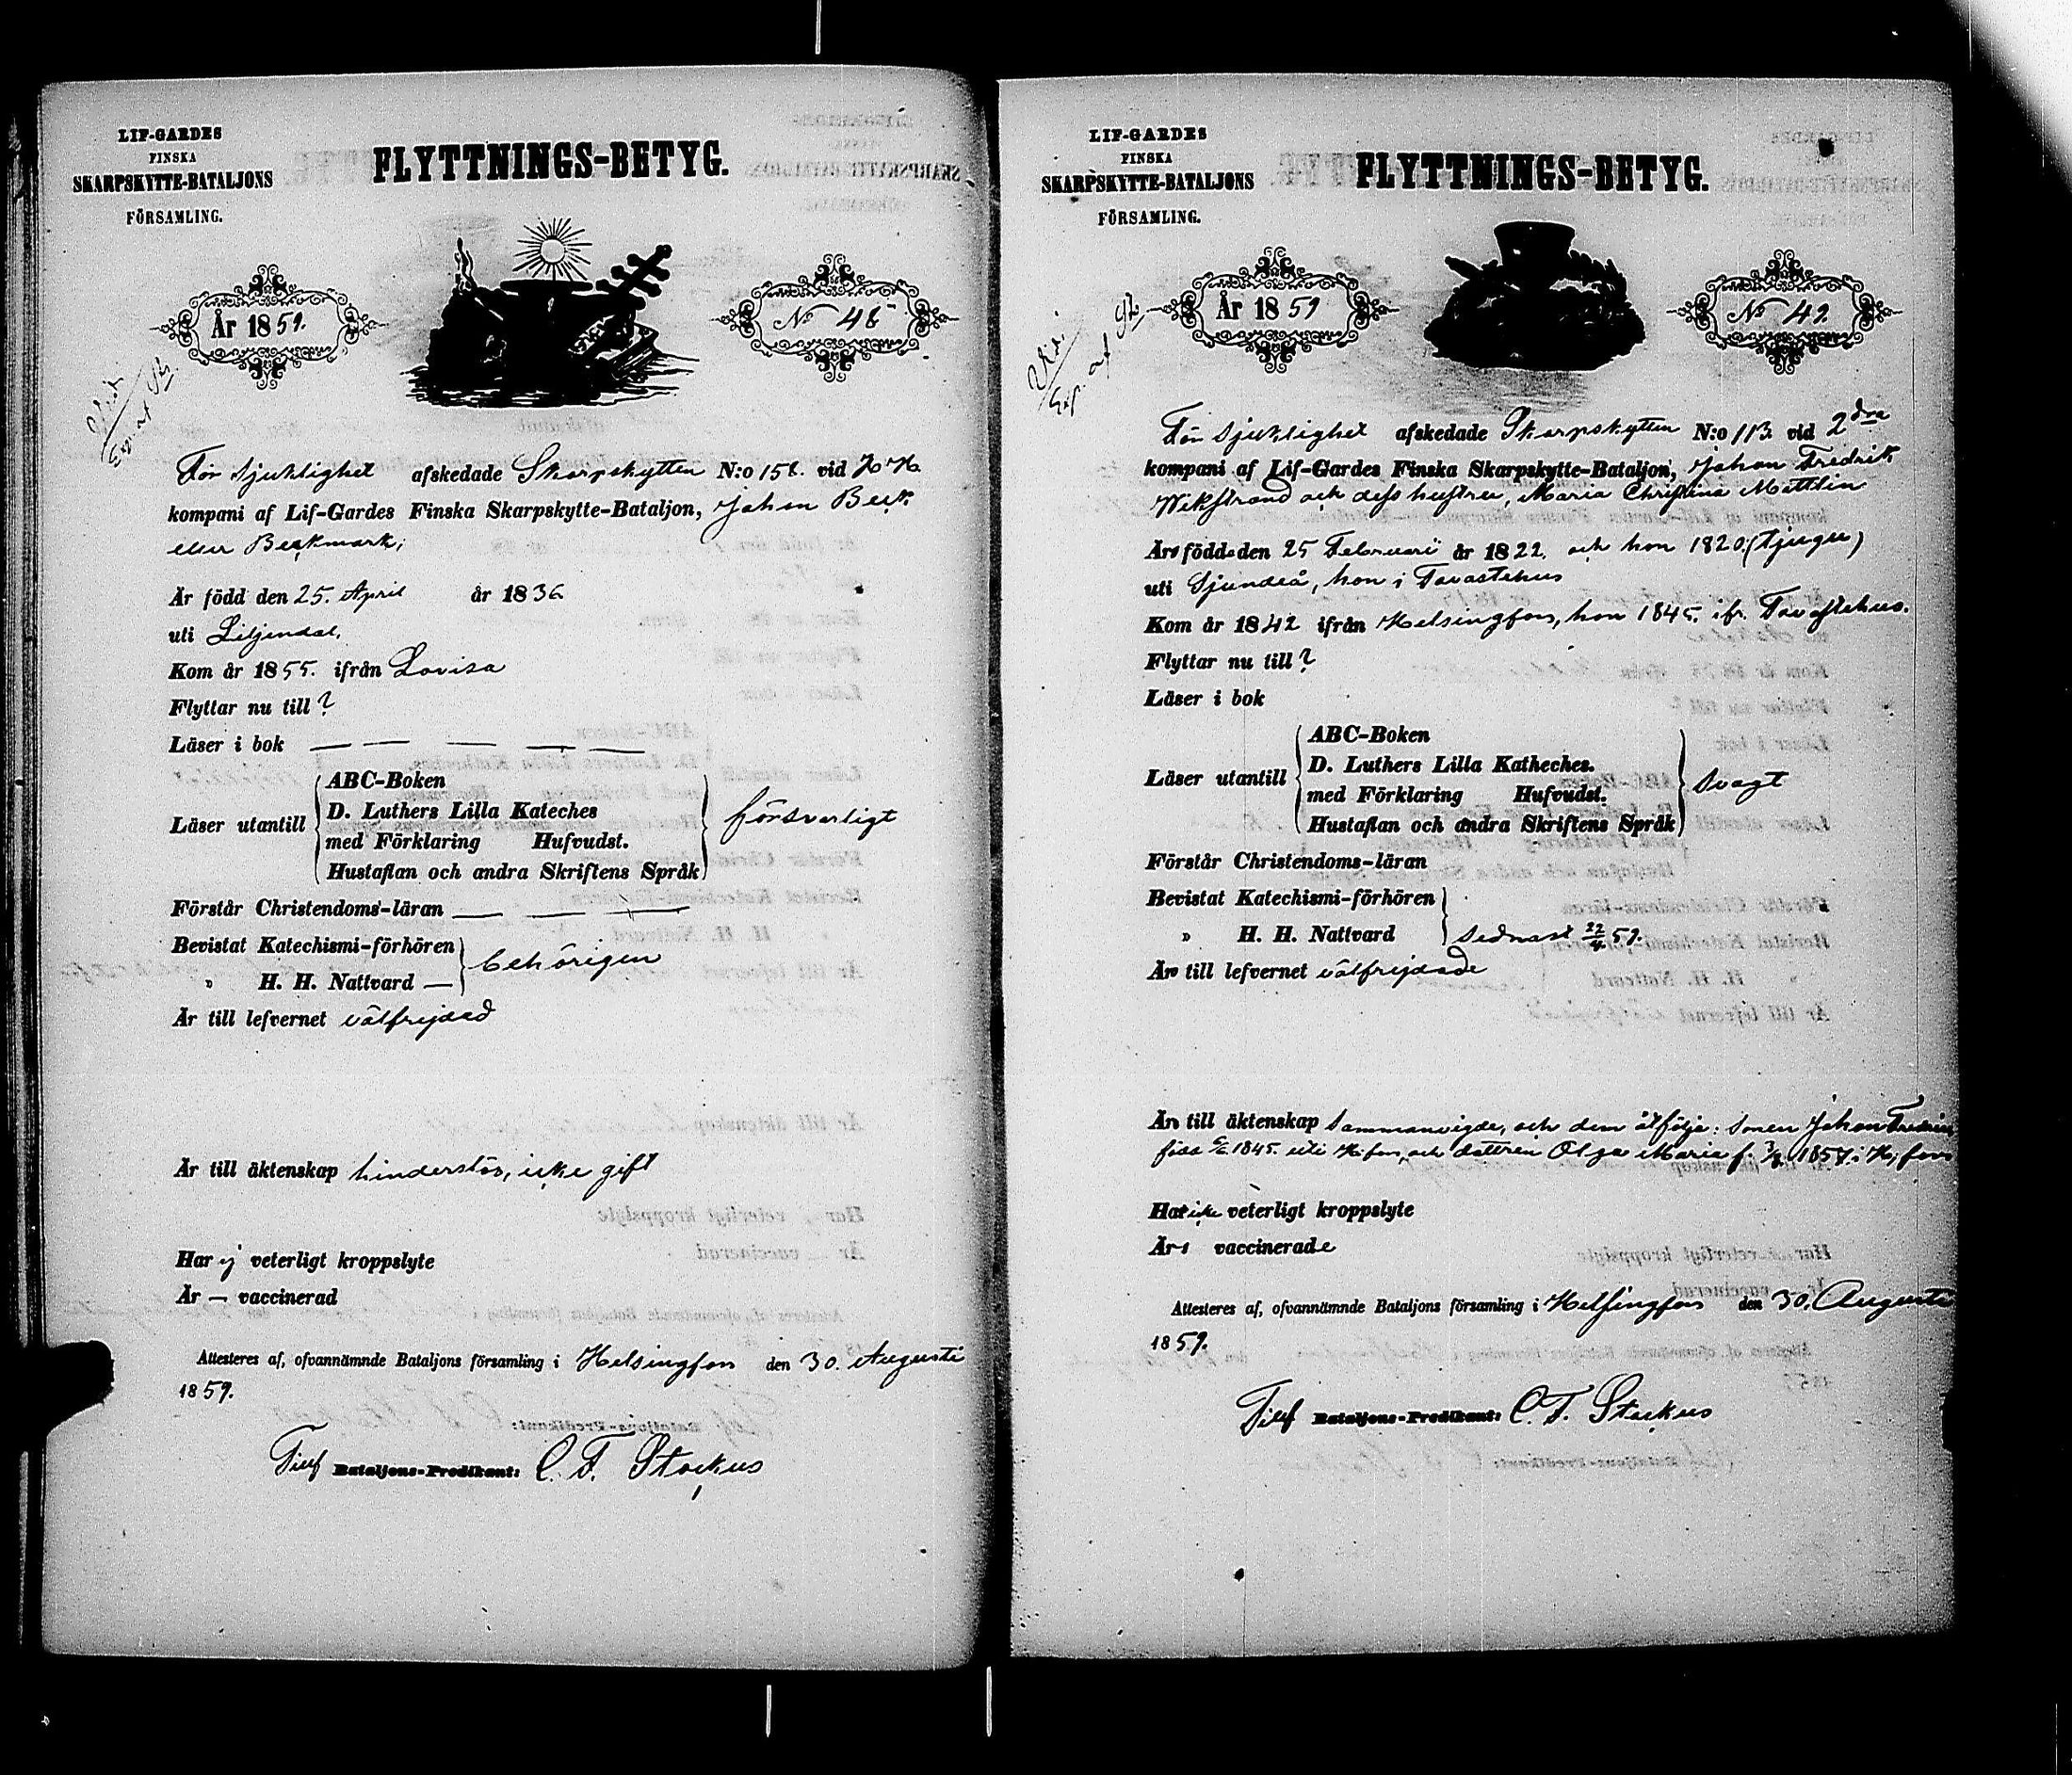 LIF-GARDES
FINSKA
SKARPSKYTTE-BATALJONS
FÖRSAMLING.
FLYTTNINGS-BETYG.
År 1859.
No 48
För Sjuklighet afskedade Skarpskytten N:o 158. vid H. H.
kompani af Lif-Gardes Finska Skarpskytte-Bataljon, Johan Beck
eller Beckmark;
Är född den 25. April år 1836
uti Liljendal,
Kom år 1855. ifrån Lovisa
Flyttar nu till ?
Läser i bok — — — — —
Läser utantill
ABC-Boken
D. Luthers Lilla Kateches
med Förklaring Hufvudst.
Hustaflan och andra Skriftens Språk
försvarligt
Förstår Christendoms-läran — — —
Bevistat Katechismi-förhören
" H. H. Nattvard —
behörigen
Är till lefvernet välfrejdad
Är till äktenskap hinderslös, icke gift
Har ej veterligt kroppslyte
Är — vaccinerad
Attesteres af, ofvannämnde Bataljons församling i Helsingfors den 30. Augusti
1859.
Tjenf Bataljons-Predikant: C. F. Stockus
LIF-GARDES
FINSKA
SKARPSKYTTE-BATALJONS
FÖRSAMLING.
FLYTTNINGS-BETYG.
År 1859
No 49.
För Sjuklighet afskedade Skarpskytten N:o 113. vid 2dra
kompani af Lif-Gardes Finska Skarpskytte-Bataljon, Johan Fredrik
Wikstrand och dess hustru, Maria Christina Mattlin
Äro födde den 25 Februari år 1822. och hon 1820. (tjugu)
uti Sjundeå, hon i Tavastehus
Kom år 1842 ifrån Helsingfors, hon 1845. ifr. Tavastehus.
Flyttar nu till ?
Läser i bok
Läser utantill
ABC-Boken
D. Luthers Lilla Katheches.
med Förklaring Hufvudst.
Hustaflan och andra Skriftens Språk
svagt
Förstår Christendoms-läran
Bevistat Katechismi-förhören
" H. H. Nattvard
sednast 22/4 59.
Äro till lefvernet välfrejdade
Äro till äktenskap sammanvigde, och dem åtfölja: sonen Johan
född 1845. uti H:fors, och dottren Olga Maria f. 1857. i H:fors
Har icke veterligt kroppslyte
Är vaccinerade
Attesteres af, ofvannämnde Bataljons församling i Helsingfors den 30. Augusti
1859.
Tjenf Bataljons-Predikant: C. F. Stockus